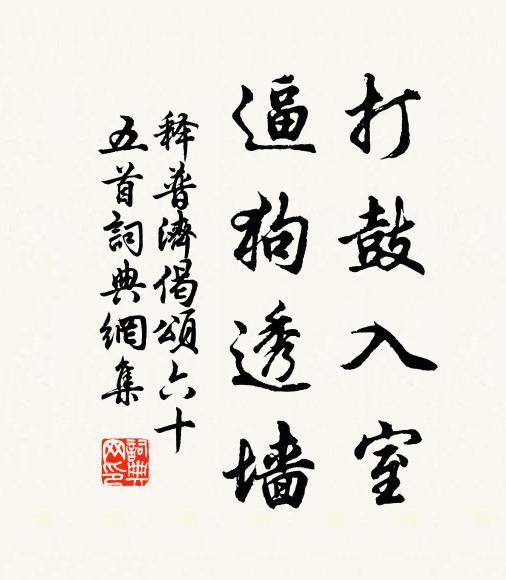 打鼓入室
逼狗透墙
释普濟偈頌六十
五首詞典網集
詞典網印